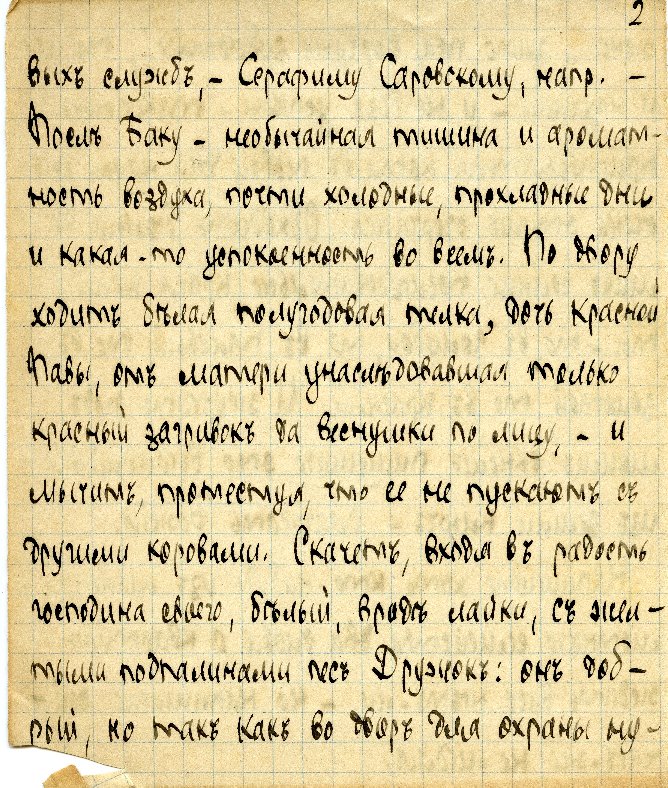 2
выхъ службъ, – Серафиму Саровскому, напр. –
Послѣ Баку – необычайная тишина и аромат-
ность воздуха, почти холодные, прохладные дни
и какая-то успокоенность во всемъ. По двору
ходитъ бѣлая полугодовая телка, дочь Красной
Павы, отъ матери унаслѣдовавшая только
красный загривокъ да веснушки по лицу, – и
мычитъ, протестуя, что ее не пускаютъ съ
другими коровами. Скачетъ, входя въ радость
господина своего, бѣлый, вродѣ лайки, съ жел-
тыми подпалинами песъ Дружокъ: онъ доб-
рый, но такъ какъ во дворѣ для охраны ну-